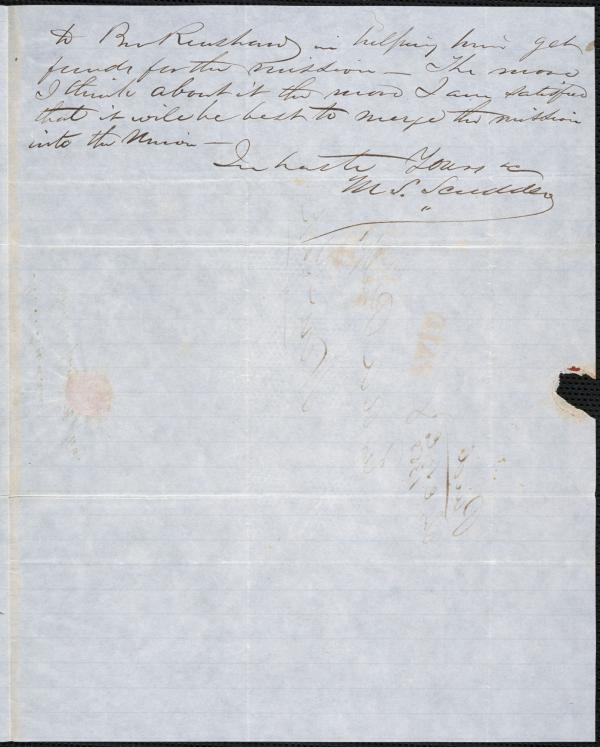 to Br Renshaw in helping him get
funds for the mission — The more
I think about it the more I am satisfied
that it will be best to merge the mission
into the Union —
In haste Yours &c
M. S. Scudder
PAID